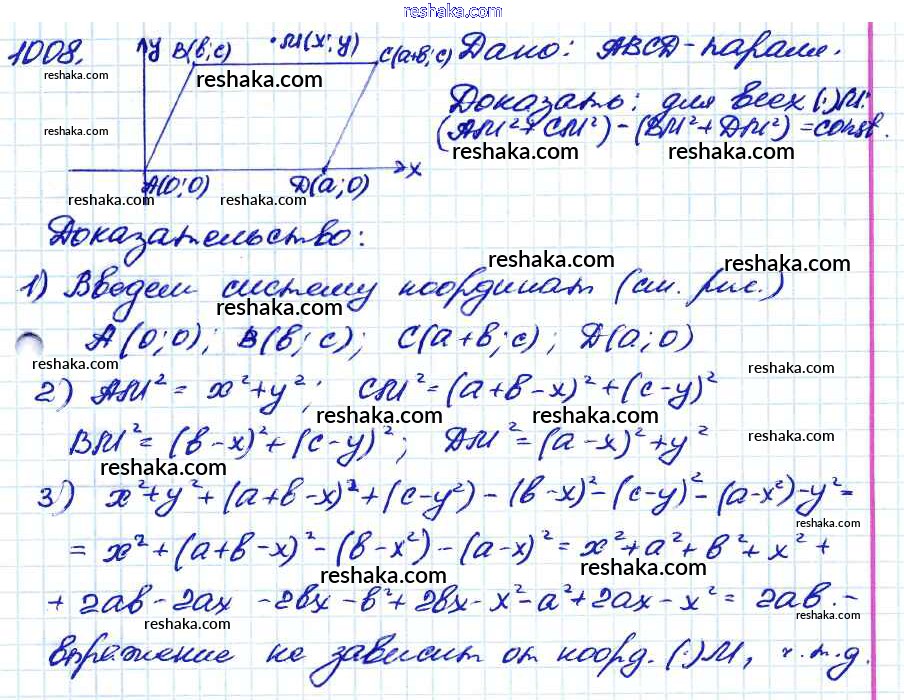 reshaka.com
1008.
y
B(в;с)
M(x;y)
C(a+в;с)
Дано: ABCD-парал.
reshaka.com
reshaka.com
Доказать: для всех (·)M:
(AM²+CM²)-(BM²+DM²)=const.
reshaka.com
reshaka.com
reshaka.com
x
A(0;0)
D(a;0)
reshaka.com
reshaka.com
Доказательство:
reshaka.com
reshaka.com
reshaka.com
1) Введем систему координат (см. рис.)
reshaka.com
A(0;0); B(в;с); C(a+в;с); D(a;0)
reshaka.com
reshaka.com
2) AM² = x²+y²; CM²=(a+в-x)²+(с-y)²
reshaka.com
reshaka.com
BM²=(в-x)²+(с-y)²; DM²=(a-x)²+y²
reshaka.com
reshaka.com
3) x²+y²+(a+в-x)²+(с-y²)-(в-x)²-(с-y)²-(a-x²)-y²=
reshaka.com
= x²+(a+в-x)²-(в-x²)-(a-x)²=x²+a²+в²+x²+
reshaka.com
reshaka.com
+2aв-2ax-2вx-в²+2вx-x²-a²+2ax-x²=2aв.-
reshaka.com
reshaka.com
выражение не зависит от коорд. (·)M, ч.т.д.
reshaka.com
reshaka.com